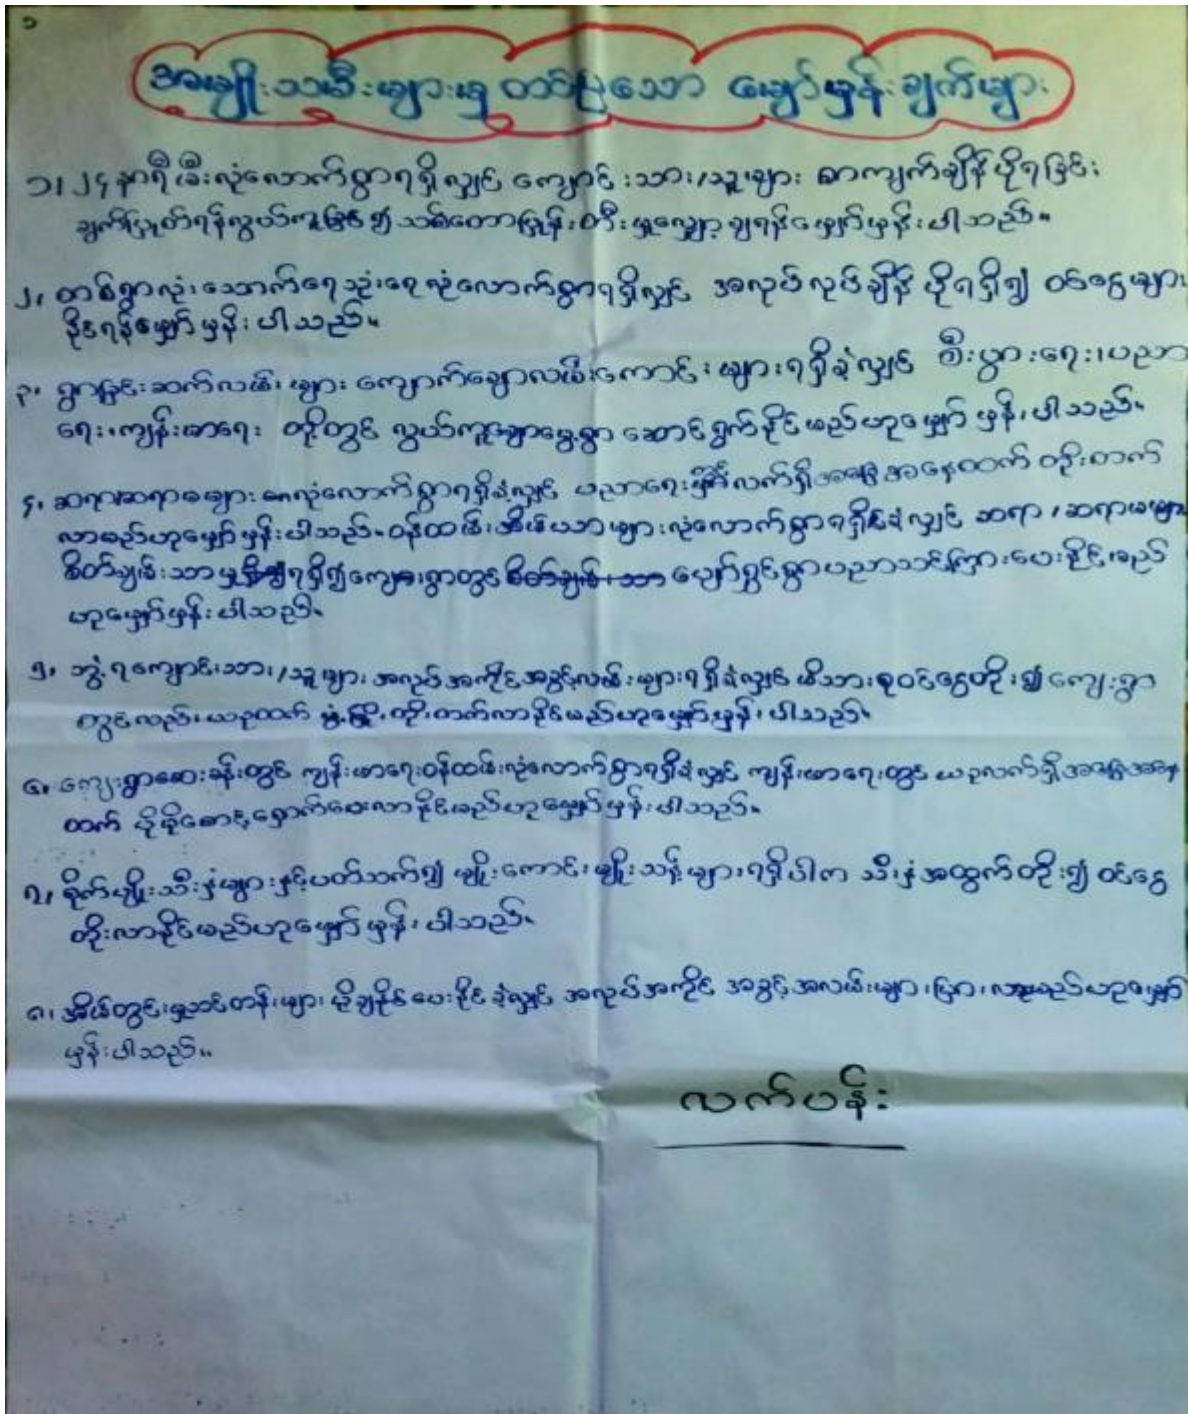 ၁
အမျိုးသမီးများမှ တင်ပြသော မျှော်မှန်းချက်များ
၁၊ ၂၄ နာရီ မီးလုံလောက်စွာရရှိလျှင် ကျောင်းသား/သူများ စာကျက်ချိန်ပိုရခြင်း
ချက်ပြုတ်ရန်လွယ်ကူခြင်း၍ သစ်တောပြုန်းတီးမှုလျှော့ချရန်မျှော်မှန်းပါသည်။
၂၊ တစ်ရွာလုံးသောက်ရေသုံးရေလုံလောက်စွာရရှိလျှင် အလုပ်လုပ်ချိန် ပိုရရှိ၍ ဝင်ငွေများ
နိုင်ရန်မျှော်မှန်းပါသည်။
၃၊ ရွာချင်းဆက်လမ်းများ ကျောက်ချောလမ်းကောင်းများရရှိခဲ့လျှင် စီးပွားရေး၊ပညာ
ရေး၊ကျန်းမာရေး တို့တွင် လွယ်ကူချောမွေ့စွာ ဆောင်ရွက်နိုင်မည်ဟုမျှော်မှန်းပါသည်။
၄၊ ဆရာ/ဆရာမများ လုံလောက်စွာရရှိခဲ့လျှင် ပညာရေး လက်ရှိအခြေအနေထက် တိုးတက်
လာမည်ဟုမျှော်မှန်းပါသည်။ ဝန်ထမ်းအိမ်ယာများလုံလောက်စွာရရှိခဲ့လျှင် ဆရာ၊ဆရာမများ
စိတ်ချမ်းသာမှုရရှိ၍ကျေးရွာတွင် ပျော်ရွှင်စွာပညာသင်ကြားပေးနိုင်မည်
ဟုမျှော်မှန်းပါသည်။
၅၊ ဘွဲ့ရကျောင်းသား/သူများ အလုပ်အကိုင်အခွင့်လမ်းများရရှိခဲ့လျှင် မိသားစုဝင်ငွေတိုး၍ ကျေးရွာ
တွင်လည်း ယခုထက် ဖွံ့ဖြိုးတိုးတက်လာနိုင်မည်ဟုမျှော်မှန်းပါသည်။
၆၊ ကျေးရွာဆေးခန်းတွင် ကျန်းမာရေးဝန်ထမ်းလုံလောက်စွာရရှိခဲ့လျှင် ကျန်းမာရေးတွင် ယခုလက်ရှိအခြေအနေ
ထက် ပိုမိုစောင့်ရှောက်ပေးလာနိုင်မည်ဟုမျှော်မှန်းပါသည်။
၇၊ စိုက်ပျိုးသီးနှံများနှင့်ပတ်သက်၍ မျိုးကောင်းမျိုးသန့်များရရှိပါက သီးနှံအထွက်တိုး၍ ဝင်ငွေ
တိုးလာနိုင်မည်ဟုမျှော်မှန်းပါသည်။
၈၊ အိမ်တွင်းမှုသင်တန်းများ ပို့ချနိုင်ပေးနိုင်ခဲ့လျှင် အလုပ်အကိုင် အခွင့်အလမ်းများ ပြားလာမည်ဟုမျှော်
မှန်းပါသည်။
လက်ပန်း